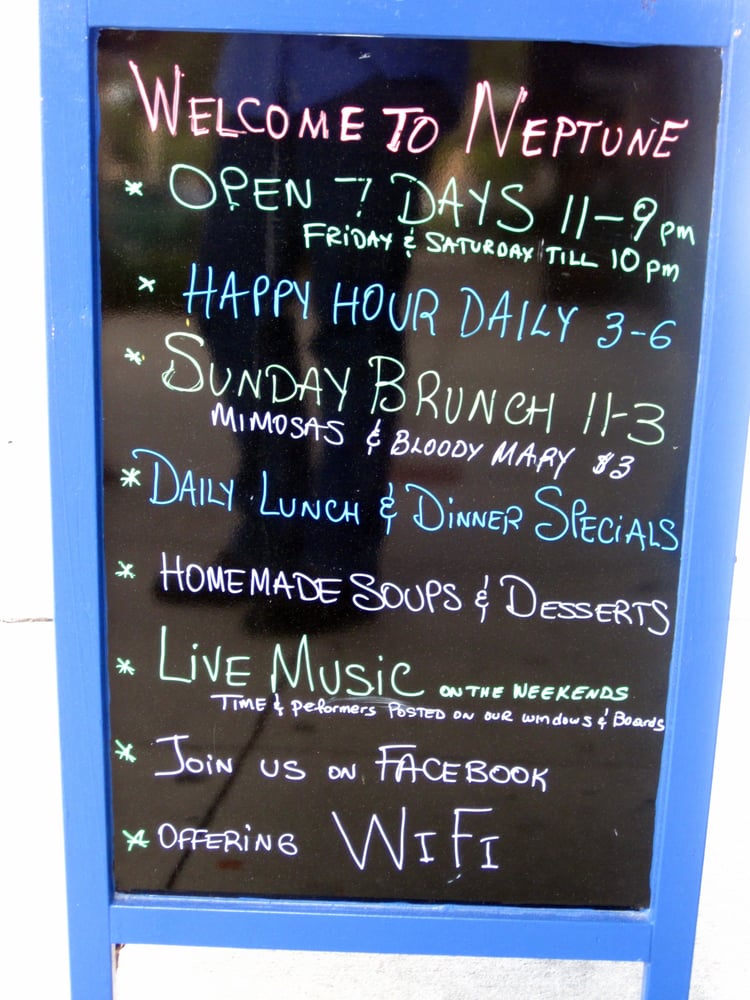 WELCOME TO NEPTUNE
* OPEN 7 DAYS 11-9 pm
FRIDAY & SATURDAY TILL 10 pm
* HAPPY HOUR DAILY 3-6
* SUNDAY BRUNCH 11-3
MIMOSAS & BLOODY MARY $3
* DAILY LUNCH & DINNER SPECIALS
* HOMEMADE SOUPS & DESSERTS
* LIVE MUSIC ON THE WEEKENDS
TIME & performers POSTED ON OUR windows & Boards
* JOIN US ON FACEBOOK
* OFFERING WIFI